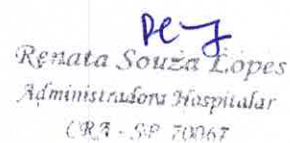 Renata Souza Lopes
Administradora Hospitalar
CRA - SP 70067